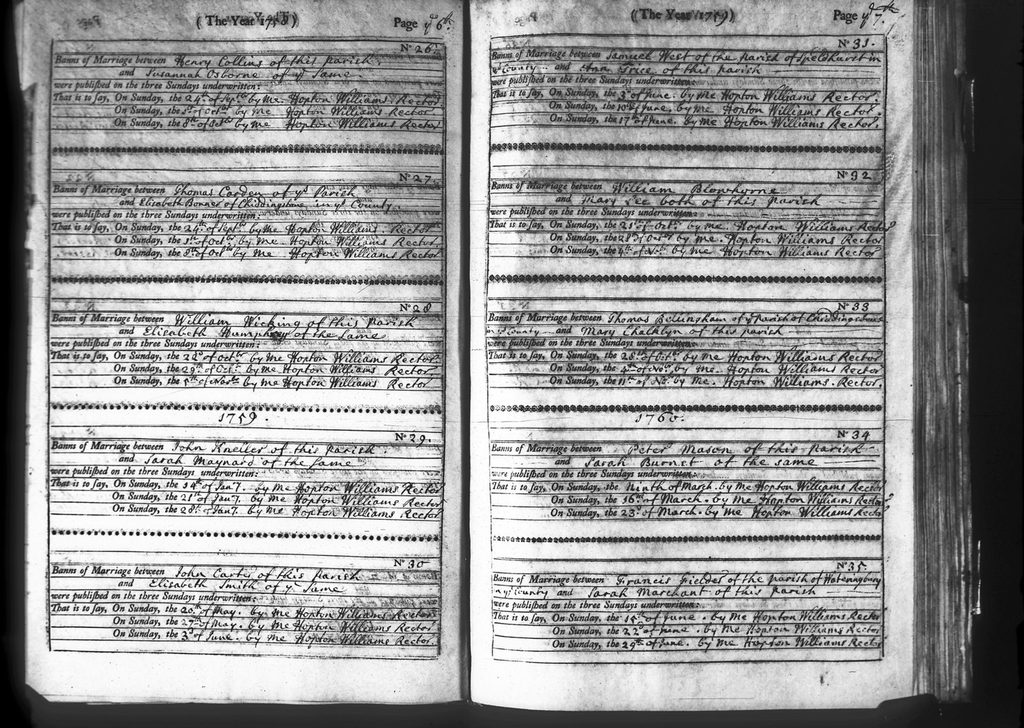 (The Year 1758)
Page ye 6th.
No 26.
Banns of Marriage between Henry Collins of this parish
and Susannah Osborne of ye Same
were published on the three Sundays underwritten:
That is to say, On Sunday, the 24th of Septr by me Hopton Williams Rector
On Sunday, the 1st of Octr by me Hopton Williams Rector
On Sunday, the 8th of Octr by me Hopton Williams Rector
No 27.
Banns of Marriage between Thomas Carden of ys Parish
and Elisabeth Bonner of Chiddingstone in ys County
were published on the three Sundays underwritten:
That is to say, On Sunday, the 24th of Septr by me Hopton Williams Rector
On Sunday, the 1st of Octr by me Hopton Williams Rector
On Sunday, the 8th of Octr by me Hopton Williams Rector
No 28
Banns of Marriage between William Wicking of this parish
and Elisabeth Humphrey of the Same
were published on the three Sundays underwritten:
That is to say, On Sunday, the 22d of Octr by me Hopton Williams Rector
On Sunday, the 29th of Octr by me Hopton Williams Rector
On Sunday, the 5th of Novr by me Hopton Williams Rector
1759.
No 29.
Banns of Marriage between John Kneller of this parish
and Sarah Maynard of the Same
were published on the three Sundays underwritten:
That is to say, On Sunday, the 14th of Jany. by me Hopton Williams Rector
On Sunday, the 21st of Jany. by me Hopton Williams Rector
On Sunday, the 28th of Jany. by me Hopton Williams Rector
No 30
Banns of Marriage between John Carter of this parish
and Elisabeth Smith of ye Same
were published on the three Sundays underwritten:
That is to say, On Sunday, the 20th of May. by me Hopton Williams Rector
On Sunday, the 27th of May. by me Hopton Williams Rector
On Sunday, the 3d of June. by me Hopton Williams Rector
(The Year 1759)
Page ye 7th.
No 31.
Banns of Marriage between Samuel West of the parish of Speldhurst in
ys County and Ann Price of this parish
were published on the three Sundays underwritten:
That is to say, On Sunday, the 3d of June. by me Hopton Williams Rector.
On Sunday, the 10th of June. by me Hopton Williams Rector.
On Sunday, the 17th of June. by me Hopton Williams Rector.
No 32
Banns of Marriage between William
and Mary Lee both of this parish
were published on the three Sundays underwritten:
That is to say, On Sunday, the 21st of Octr by me. Hopton Williams Rector
On Sunday, the 28th of Octr by me. Hopton Williams Rector
On Sunday, the 4th of Novr. by me Hopton Williams Rector
No 33
Banns of Marriage between Thomas Bellingham of ye parish of Chiddingstone
in ys County and Mary Chalklyn of this parish
were published on the three Sundays underwritten:
That is to say, On Sunday, the 28th of Octr. by me Hopton Williams Rector
On Sunday, the 4th of Novr. by me Hopton Williams Rector
On Sunday, the 11th of Novr. by me. Hopton Williams. Rector.
1760.
No 34
Banns of Marriage between Peter Mason of this parish
and Sarah Burnet of the same
were published on the three Sundays underwritten:
That is to say, On Sunday, the Ninth of March. by me Hopton Williams Rector
On Sunday, the 16th of March. by me Hopton Williams Rector
On Sunday, the 23d of March. by me Hopton Williams Rector
No 35.
Banns of Marriage between Francis Fielder of the parish of
in ys County and Sarah Marchant of this parish
were published on the three Sundays underwritten:
That is to say, On Sunday, the 15th of June. by me Hopton Williams Rector
On Sunday, the 22d of June. by me Hopton Williams Rector
On Sunday, the 29th of June. by me Hopton Williams Rector